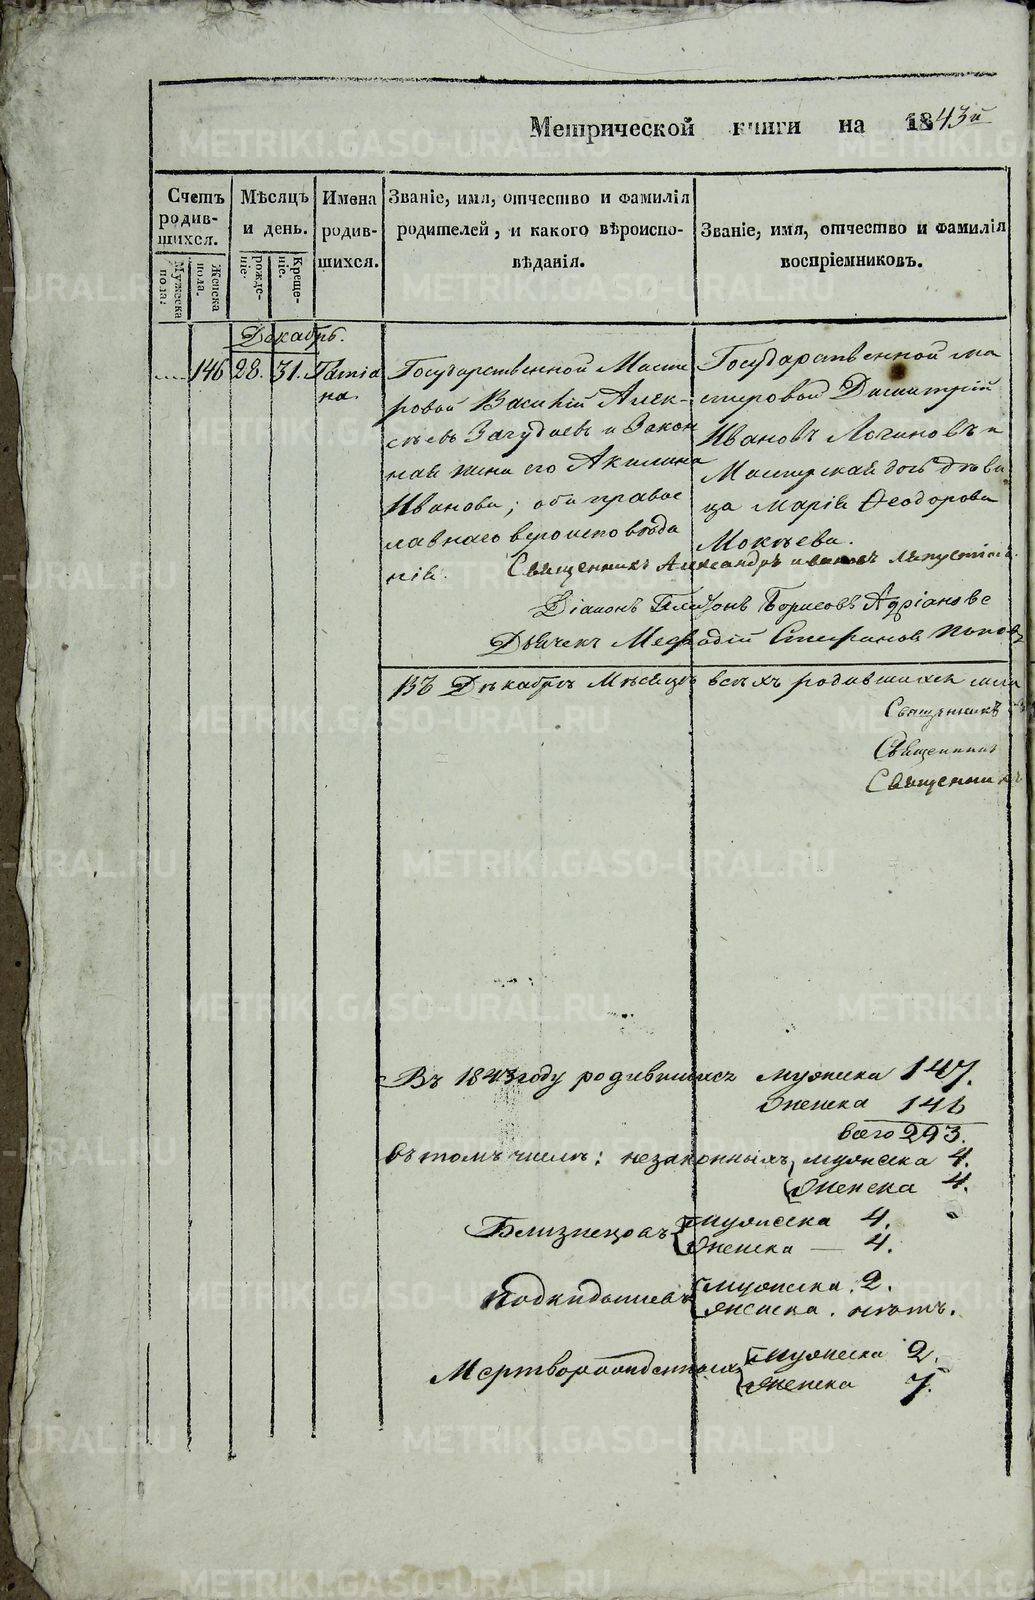 Метрической книги на 1843й
Счетъ родив-шихся.
Мужеска пола.
Женска пола.
Мѣсяцъ и день.
рожде-ніе.
Креще-ніе.
Имена родив-шихся.
Званіе, имя, отчество и фамилія
родителей, и какого вѣроиспо-
вѣданія.
Званіе, имя, отчество и фамилія
воспріемниковъ.
Декабрь.
146 28. 31. Татіа
на.
Государственной Масте
ровой Василій Алек-
сѣевъ и Закон
ная жена его Акилина
Иванова; оба правос
лавнаго вероисповѣда
нія.
Государственной ма
стеровой Димитрій
Ивановъ Логиновъ и
Мастерская дочь дѣви
ца Марія Феодорова
Мокѣева.
Священникъ Александръ
Діаконъ Борисовъ Адріановъ
Дьячекъ Мефодій Стефановъ Поповъ
Въ Декабрѣ Мѣсяцѣ всѣхъ родившихся
Священникъ
Священникъ
Священникъ
Въ 1843 году родившихся мужеска 147.
Женска 146
всего 293.
въ томъ числѣ: незаконныхъ мужеска 4.
Женска 4.
Близнецовъ мужеска 4.
Женска — 4.
Подкидышевъ мужеска. 2.
женска. нѣтъ.
Мертворожденныхъ мужеска 2.
Женска 7.
METRIKI.GASO-URAL.RU